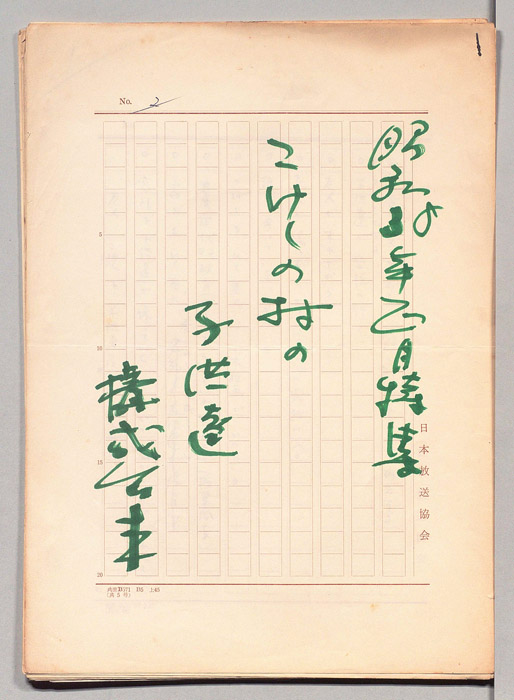 No. 2
昭和 年正月特集
こけしの村の
子供達
構成台本
日本放送協会
5
10
15
20
B5